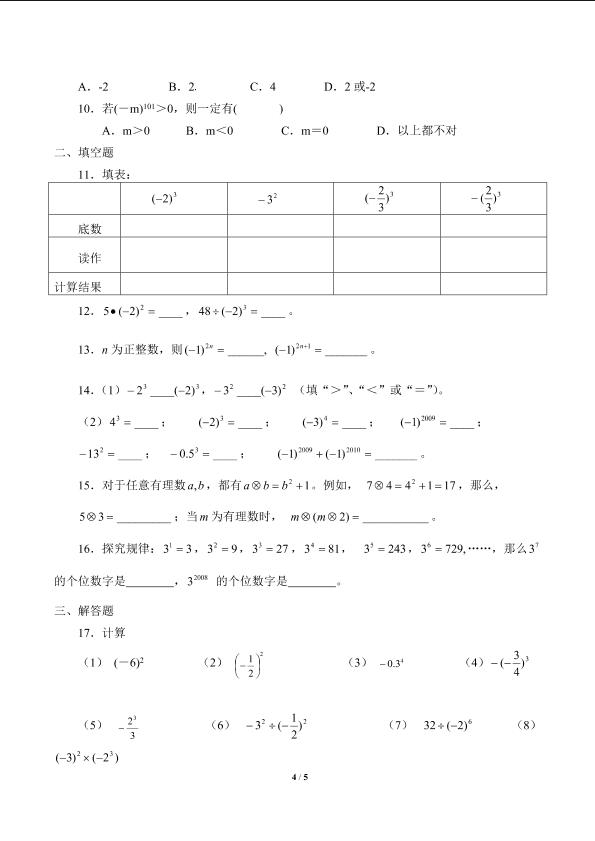 A．-2 B．2 C．4 D．2 或-2
10．若(－m)¹⁰¹＞0，则一定有( )
A．m＞0 B．m＜0 C．m＝0 D．以上都不对
二、填空题
11．填表：
(−2)³ −3² (−2/3)³ −(2/3)³
底数
读作
计算结果
12．5•(−2)² = ____，48÷(−2)³ = ____。
13．n 为正整数，则(−1)²ⁿ = ______, (−1)²ⁿ⁺¹ = _______。
14．（1）−2³ ____(−2)³，−3² ____(−3)² （填“＞”、“＜”或“＝”）。
（2）4³ = ____； (−2)³ = ____； (−3)⁴ = ____； (−1)²⁰⁰⁹ = ____；
−13² = ____； −0.5³ = ____； (−1)²⁰⁰⁹ + (−1)²⁰¹⁰ = _______。
15．对于任意有理数 a,b，都有 a⊗b = b² +1。例如， 7⊗4 = 4² +1 = 17，那么，
5⊗3 = _________；当 m 为有理数时， m⊗(m⊗2) = ___________。
16．探究规律：3¹ = 3，3² = 9，3³ = 27，3⁴ = 81， 3⁵ = 243，3⁶ = 729,……，那么 3⁷
的个位数字是________，3²⁰⁰⁸ 的个位数字是________。
三、解答题
17．计算
（1） (－6)² （2） (−1/2)² （3） −0.3⁴ （4）−(−3/4)³
（5） −2³/3 （6） −3² ÷(−1/2)² （7） 32÷(−2)⁶ （8）
(−3)² ×(−2³)
4 / 5